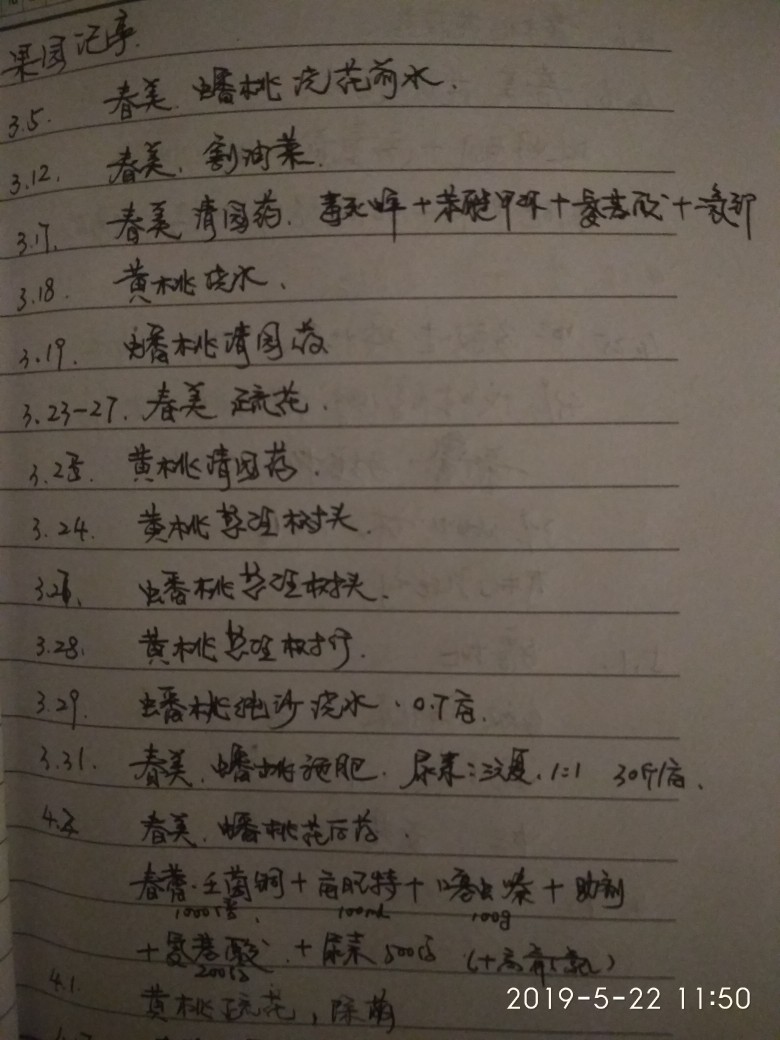 果园记事.
3.5. 春美. 蟠桃浇花前水.
3.12. 春美、割油菜.
3.17. 春美清园药. 毒死蜱+苯醚甲环+氨基酸+
3.18. 黄桃浇水、
3.19. 蟠桃清园药
3.23-27. 春美 疏花.
3.25. 黄桃清园药.
3.24. 黄桃整理树头.
蟠桃整理树头.
3.28. 黄桃整理树行.
3.29. 蟠桃 沙浇水. 0.7亩.
3.31. 春美. 蟠桃施肥. 尿素:三元复. 1:1 30斤/亩.
春美. 蟠桃花后药.
春蕾·壬菌铜+ +噻虫嗪+助剂
1000倍. 100ml 100g
+氨基酸. +尿素500倍
200倍
4.1. 黄桃疏花,除萌
2019-5-22 11:50